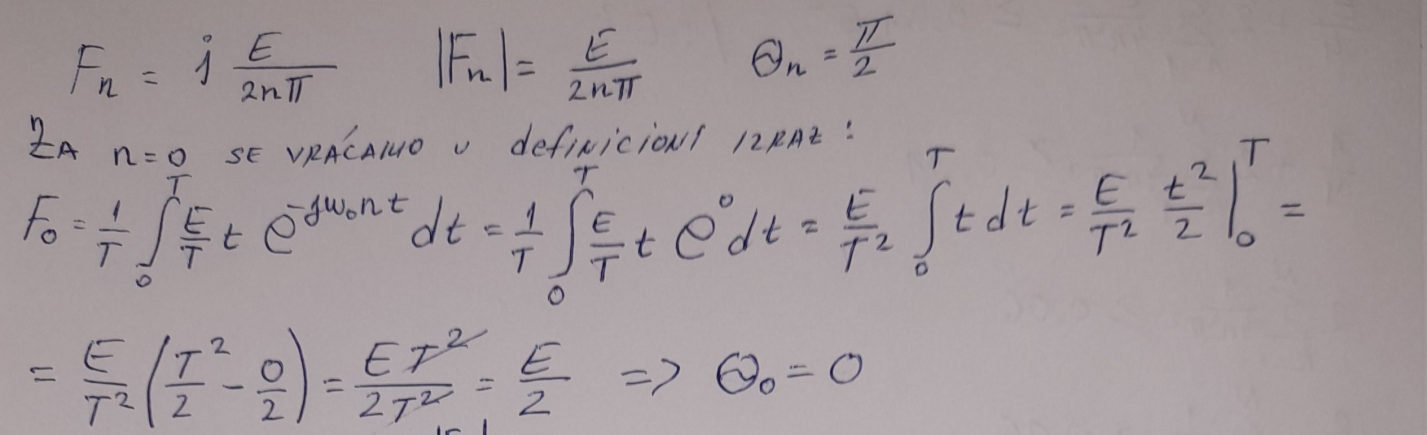 Fn = j E/2nπ |Fn| = E/2nπ Θn = π/2
ZA n=0 SE VRAĆAMO U definicioni IZRAZ:
F0 = 1/T ∫₀ᵀ E/T t e^(-jω0nt) dt = 1/T ∫₀ᵀ E/T t e⁰ dt = E/T² ∫₀ᵀ t dt = E/T² t²/2 |₀ᵀ =
= E/T² (T²/2 - 0/2) = ET²/2T² = E/2 => Θ0 = 0